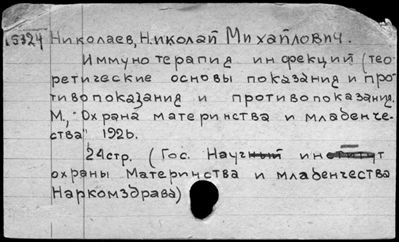 15324 Николаев, Николай Михайлович.
Иммунотерапия инфекций (тео-
ретические основы показания и про-
тивопоказания и противопоказания.
М., "Охрана материнства и младенче-
ства" 1926.
24стр. (Гос. Научный институт
охраны Материнства и младенчества
Наркомздрава)